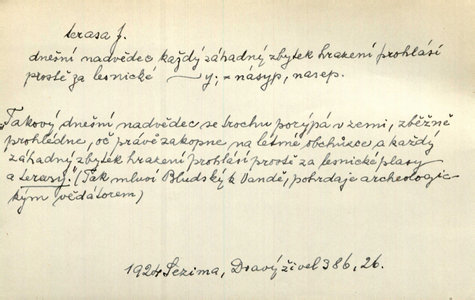 terasa f.
dnešní nadvědec každý záhadný zbytek hrazení prohlásí
prostě za lesnické —y; = násyp, nasep.
„Takový dnešní nadvědec se trochu porýpá v zemi, zběžně
prohlédne, oč právě zakopne na letmé obchůzce a každý
záhadný zbytek hrazení prohlásí prostě za lesnické plasy
a terasy." (Tak mluví Bludský k Vandě, pohrdaje archeologic-
kým vědátorem)
1924 Sezima, Dravý živel 386, 26.